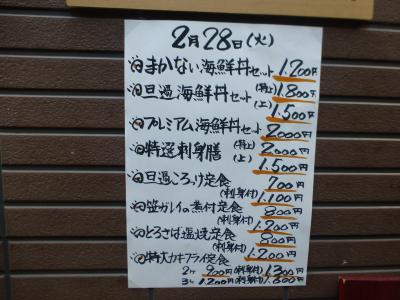 2月28日(火)
まかない海鮮丼セット 1.200円
旦過海鮮丼セット (特上) 1.800円
(上) 1.500円
プレミアム海鮮丼セット 2000円
特選刺身膳 (特上) 2.000円
(上) 1.500円
旦過ころっけ定食 700円
(刺身付) 1.100円
笹ガレイの煮付定食 800円
(刺身付) 1.200円
とろさば塩焼定食 800円
(刺身付) 1.200円
特大カキフライ定食 1.200円
2ヶ 900円 (刺身付) 1.300円
3ヶ 1.200円 (刺身付) 1.600円